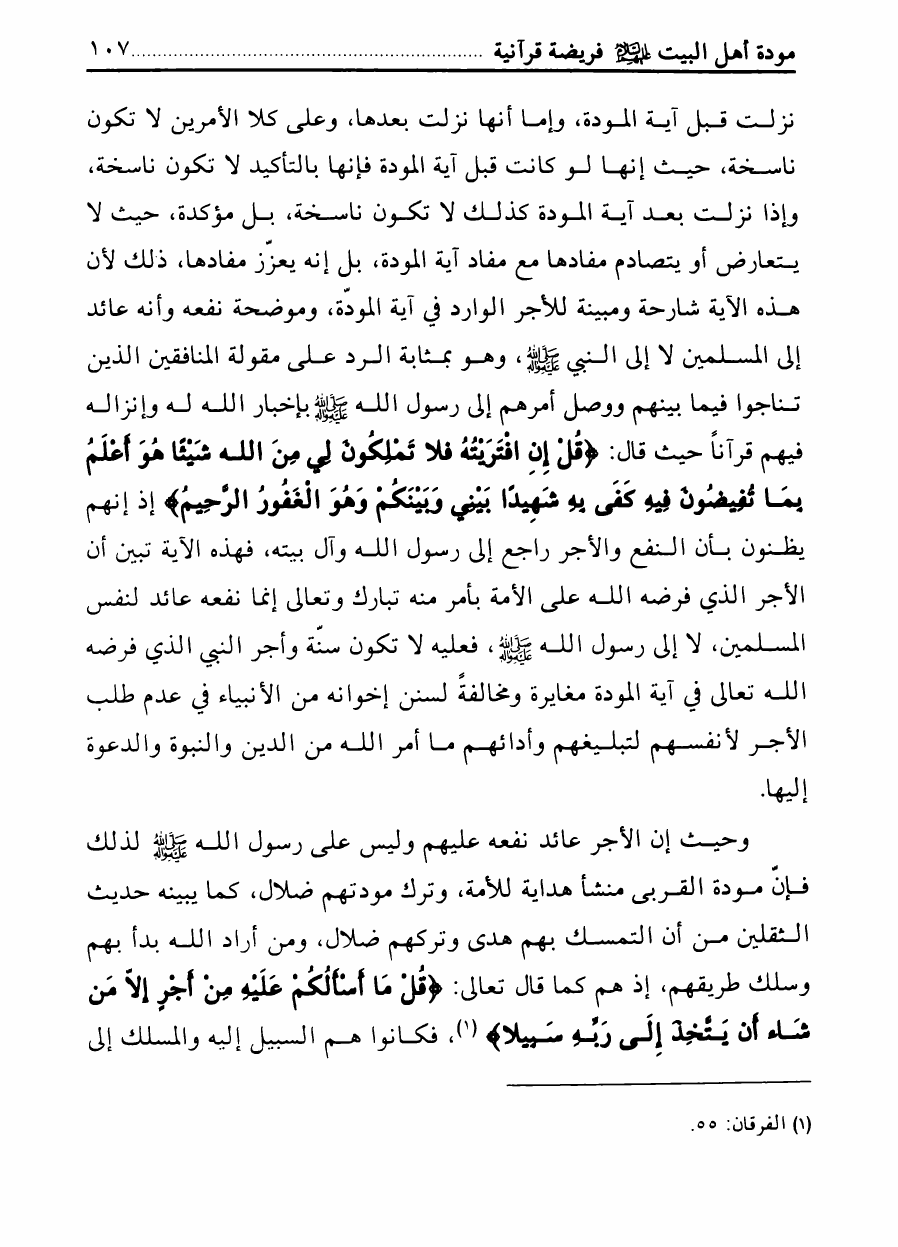 مودة أهل البيت عليهم السلام فريضة قرآنية ........................................................... ١٠٧
نزلت قبل آية المودة، وإما أنها نزلت بعدها، وعلى كلا الأمرين لا تكون
ناسخة، حيث إنها لو كانت قبل آية المودة فإنها بالتأكيد لا تكون ناسخة،
وإذا نزلت بعد آية المودة كذلك لا تكون ناسخة، بل مؤكدة، حيث لا
يتعارض أو يتصادم مفادها مع مفاد آية المودة، بل إنه يعزّز مفادها، ذلك لأن
هذه الآية شارحة ومبينة للأجر الوارد في آية المودّة، وموضحة نفعه وأنه عائد
إلى المسلمين لا إلى النبي ﷺ، وهو بمثابة الرد على مقولة المنافقين الذين
تناجوا فيما بينهم ووصل أمرهم إلى رسول الله ﷺ بإخبار الله له وإنزاله
فيهم قرآناً حيث قال: ﴿قُلْ إِنِ افْتَرَيْتُهُ فَلا تَمْلِكُونَ لِي مِنَ الله شَيْئًا هُوَ أَعْلَمُ
بِمَا تُفِيضُونَ فِيهِ كَفَى بِهِ شَهِيدًا بَيْنِي وَبَيْنَكُمْ وَهُوَ الْغَفُورُ الرَّحِيمُ﴾ إذ إنهم
يظنون بأن النفع والأجر راجع إلى رسول الله وآل بيته، فهذه الآية تبين أن
الأجر الذي فرضه الله على الأمة بأمر منه تبارك وتعالى إنما نفعه عائد لنفس
المسلمين، لا إلى رسول الله ﷺ، فعليه لا تكون سنّة وأجر النبي الذي فرضه
الله تعالى في آية المودة مغايرة ومخالفةً لسنن إخوانه من الأنبياء في عدم طلب
الأجر لأنفسهم لتبليغهم وأدائهم ما أمر الله من الدين والنبوة والدعوة
إليها.
وحيث إن الأجر عائد نفعه عليهم وليس على رسول الله ﷺ لذلك
فإنّ مودة القربى منشأ هداية للأمة، وترك مودتهم ضلال، كما يبينه حديث
الثقلين من أن التمسك بهم هدى وتركهم ضلال، ومن أراد الله بدأ بهم
وسلك طريقهم، إذ هم كما قال تعالى: ﴿قُلْ مَا أَسْأَلُكُمْ عَلَيْهِ مِنْ أَجْرٍ إِلاَّ مَن
شَاء أَن يَتَّخِذَ إِلَى رَبِّهِ سَبِيلا﴾ (١)، فكانوا هم السبيل إليه والمسلك إلى
(١) الفرقان: ٥٥.